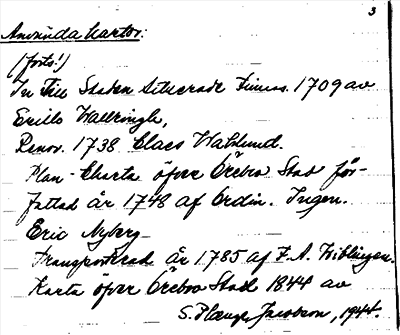 3
Använda kartor:
(forts!)
In Till Staden situerade 1709 av
Erik
Renov. 1738 Claes Wahlund.
Plan-Charta öfver Örebro Stad för-
fattad år 1748 af Ordin. Ingen.
Eric Nyberg
Transporterad år 1785 af F. A. Wiblingen.
Karta öfver Örebro Stad 1844 av
S. Jacobson, 1944.